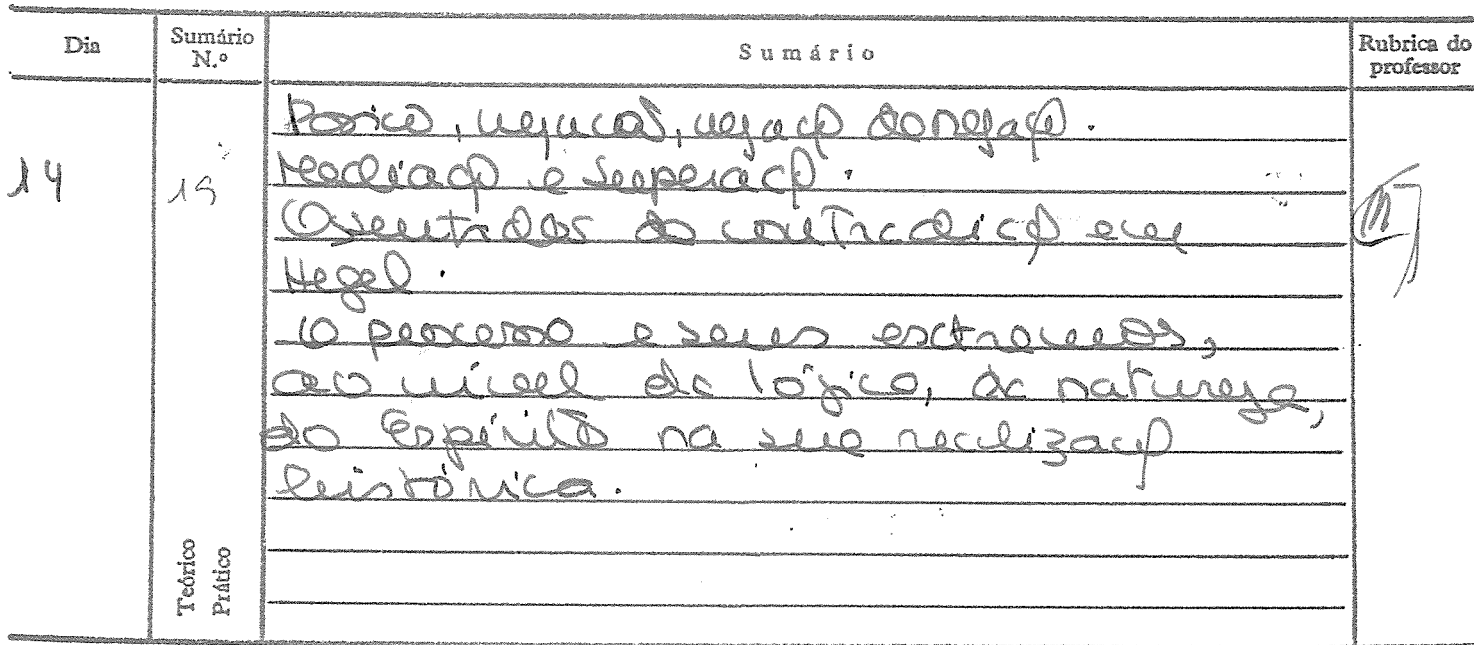 Dia
Sumário N.º
Sumário
Rubrica do professor
Posição, negação, negação da negação.
14
15
Mediação e superação.
O sentido da contradição em
Hegel.
O processo e seus
ao nível da lógica, da natureza,
do Espírito na sua realização
histórica.
Teórico
Prático